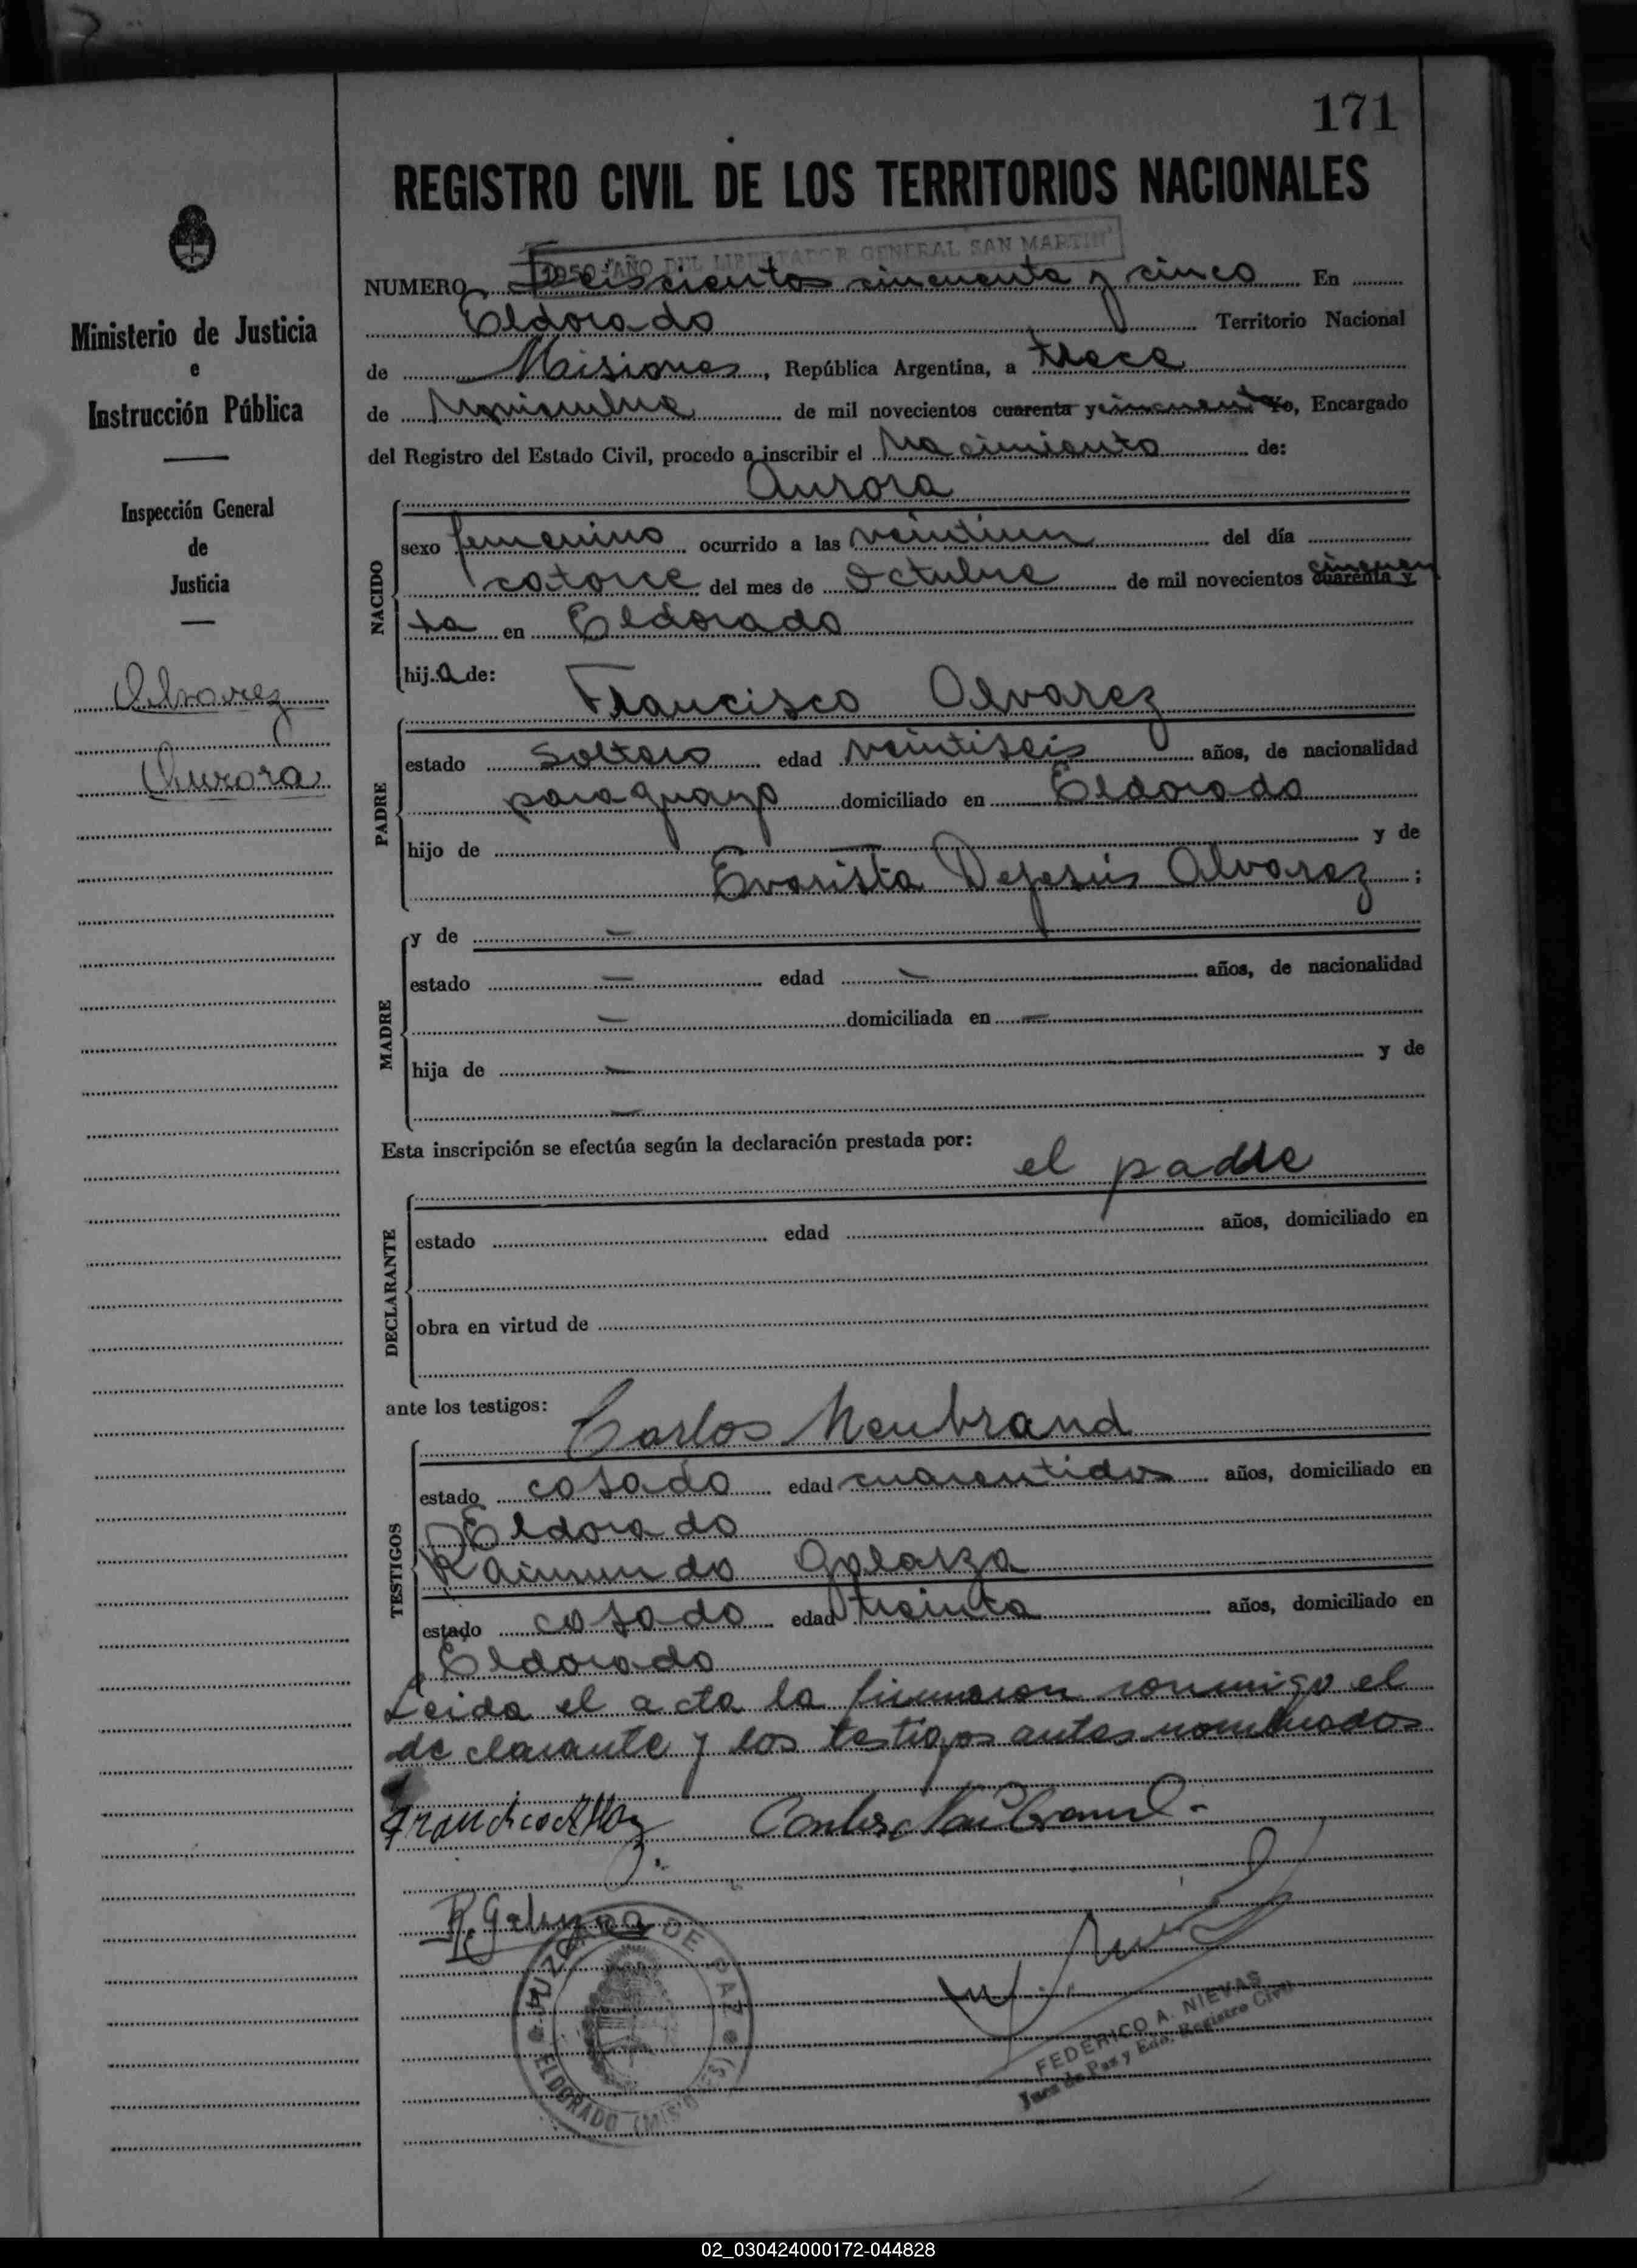 171
REGISTRO CIVIL DE LOS TERRITORIOS NACIONALES
"1950 - AÑO DEL LIBERTADOR GENERAL SAN MARTIN"
NUMERO Seiscientos cincuenta y cinco En
Eldorado Territorio Nacional
de Misiones, República Argentina, a trece
de Noviembre de mil novecientos cuarenta y cincuenta Yo, Encargado
del Registro del Estado Civil, procedo a inscribir el nacimiento de:
Aurora
NACIDO
sexo femenino ocurrido a las veintiun del día
catorce del mes de Octubre de mil novecientos cuarenta y cincuen
ta en Eldorado
hija de:
Francisco Alvarez
PADRE
estado soltero edad veintiseis años, de nacionalidad
paraguayo domiciliado en Eldorado
hijo de y de
Evarista Dejesús Alvarez ;
MADRE
y de —
estado — edad — años, de nacionalidad
— domiciliada en —
hija de — y de
—
Esta inscripción se efectúa según la declaración prestada por:
el padre
DECLARANTE
estado edad años, domiciliado en
obra en virtud de
ante los testigos:
Carlos Neubrand
TESTIGOS
estado casado edad cuarentidos años, domiciliado en
Eldorado
Raimundo Galarza
estado casado edad treinta años, domiciliado en
Eldorado
Leida el acta la firmaron conmigo el
declarante y los testigos antes nombrados
R. Galarza
JUZGADO DE PAZ
ELDORADO (MISIONES)
FEDERICO A. NIEVAS
Juez de Paz y Enc. Registro Civil
Ministerio de Justicia
e
Instrucción Pública
Inspección General
de
Justicia
Alvarez
Aurora
02_030424000172-044828